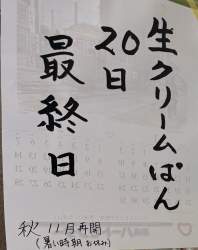 生クリームぱん
20日
最終日
秋 11月再開
(暑い時期お休み)